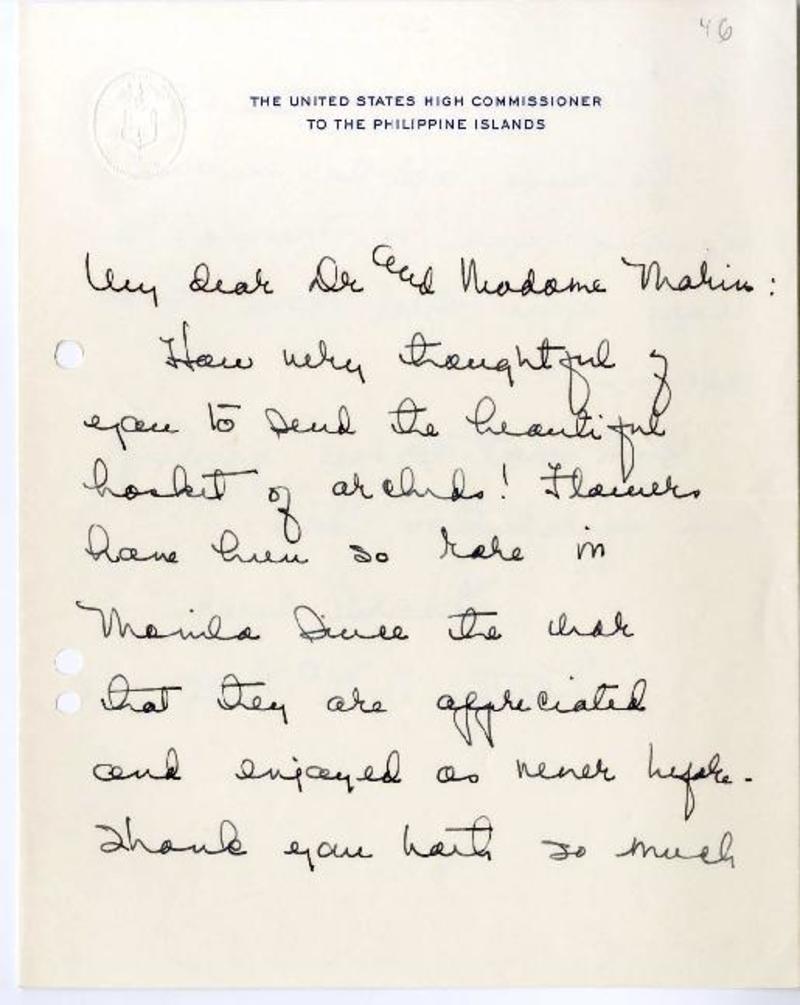 46
THE UNITED STATES HIGH COMMISSIONER
TO THE PHILIPPINE ISLANDS
My dear Dr and Madame Marin:
How very thoughtful of
you to send the beautiful
basket of orchids! Flowers
have been so rare in
Manila since the war
that they are appreciated
and enjoyed as never before.
Thank you both so much